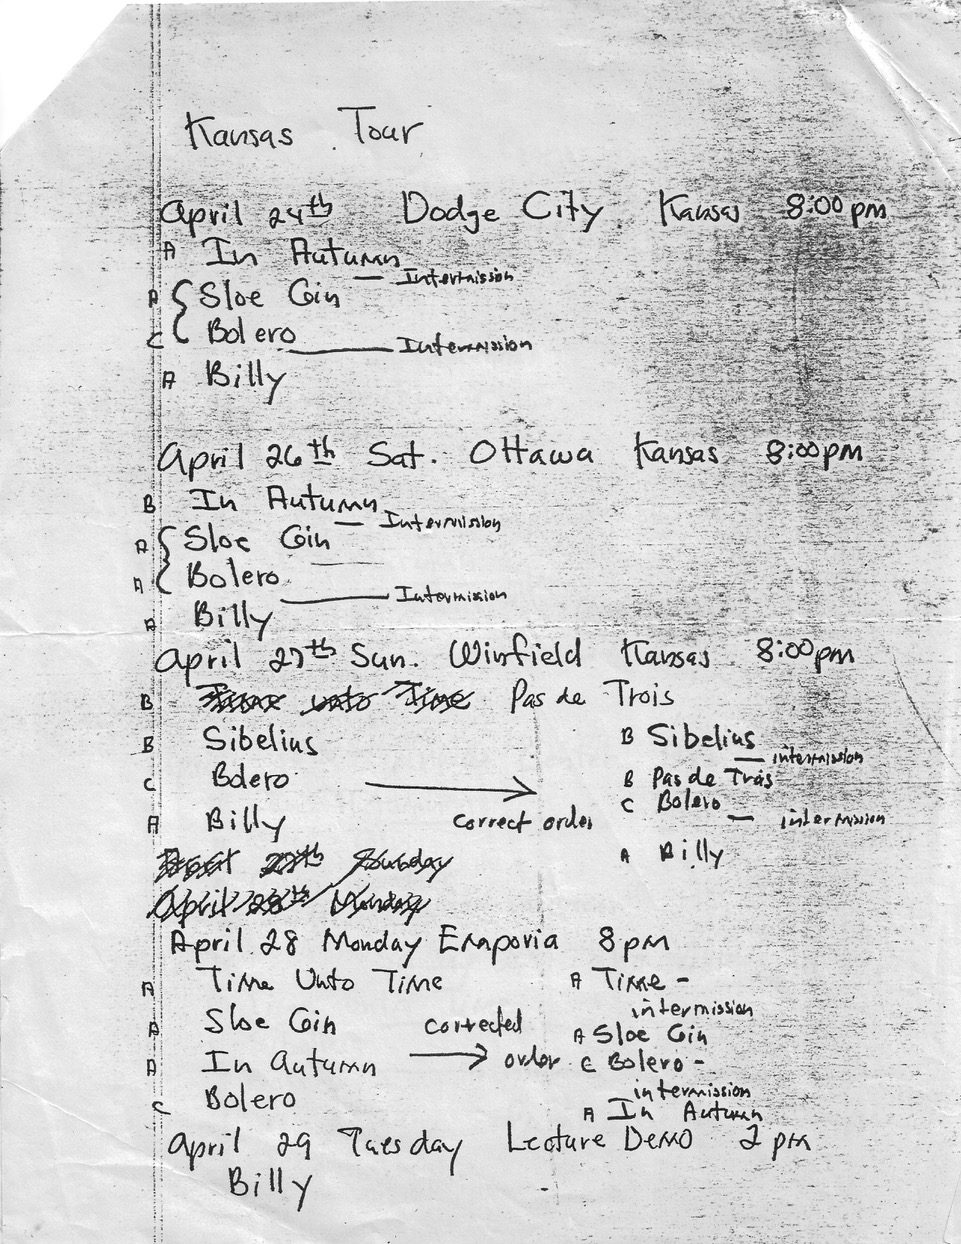 Kansas Tour
April 24th Dodge City Kansas 8:00 pm
A In Autumn
— Intermission
A { Sloe Gin
C Bolero
— Intermission
A Billy
April 26th Sat. Ottawa Kansas 8:00pm
B In Autumn
— Intermission
A { Sloe Gin
A Bolero
— Intormission
A Billy
April 27th Sun. Winfield Kansas 8:00pm
B Time unto Time Pas de Trois
B Sibelius B Sibelius
— intermission
C Bolero → B Pas de Trois
C Bolero
A Billy correct order — intermission
A Billy
27th Sunday
April 28th Monday
April 28 Monday Emporia 8 pm
A Time Unto Time A Time -
intermission
A Sloe Gin corrected A Sloe Gin
A In Autumn → order C Bolero -
C Bolero intermission
A In Autumn
April 29 Tuesday Lecture Demo 2 pm
Billy